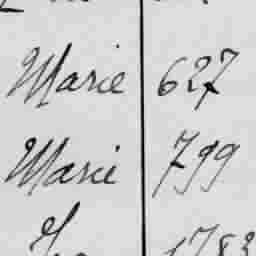 Marie 627
Marie 799